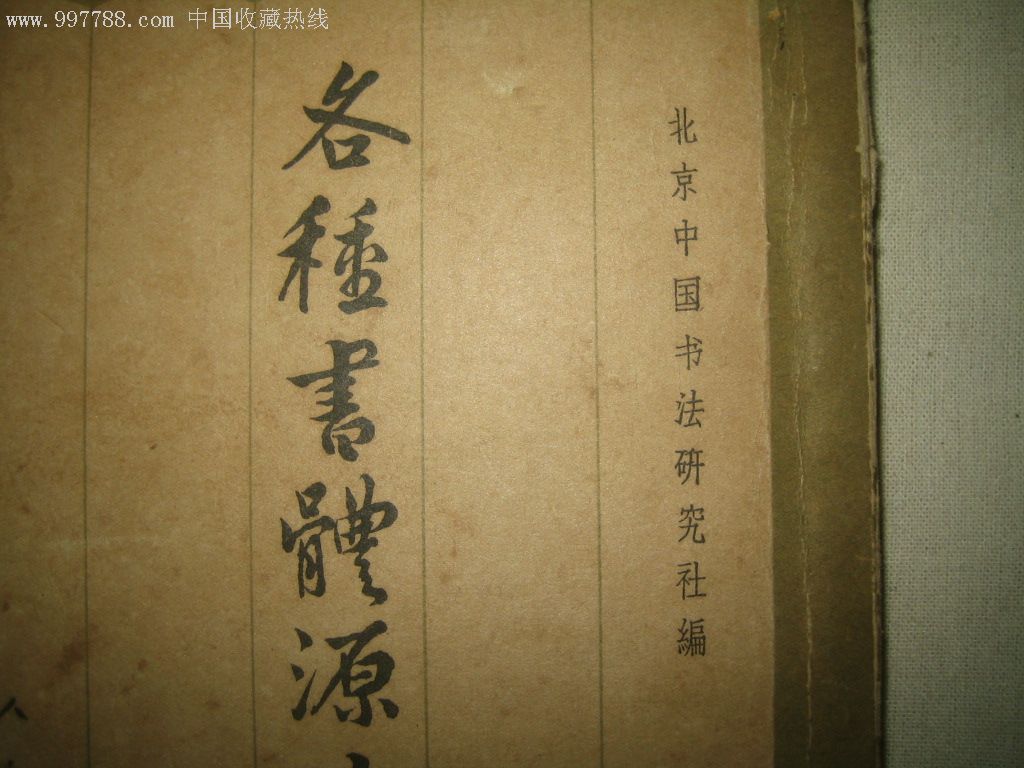 www.997788.com 中国收藏热线
北京中国书法研究社編
各種書體源